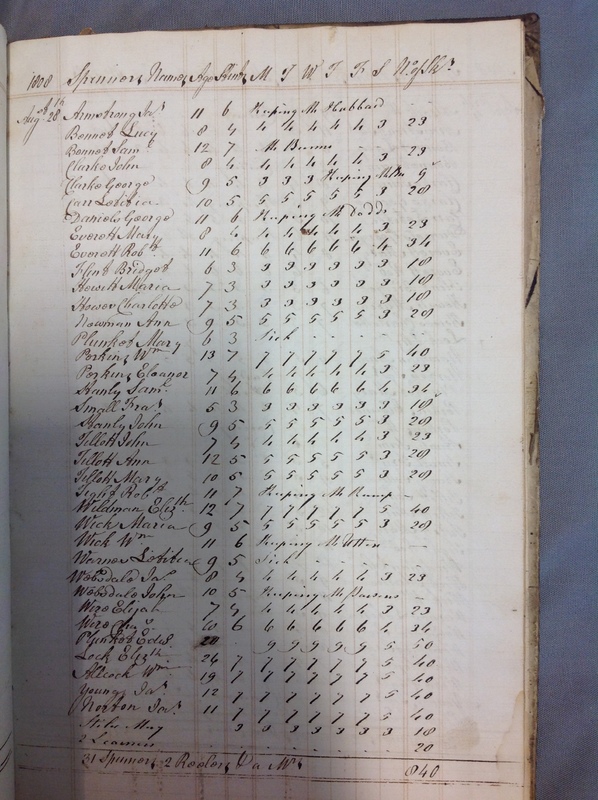 1808 Spinners Names Age Stint M T W T F S No of Sks
Augst 28th Armstrong Jas 11 6 Keeping Mr Hubbard - -
Bennet Lucy 8 4 4 4 4 4 4 3 23
Bennet Saml 12 7 Mr Burrows - - -
Clarke John 8 4 4 4 4 4 4 3 23
Clarke George 9 5 3 3 3 Keeping 9
Carr Letitia 10 5 5 5 5 5 5 3 28
Daniels George 11 6 Keeping Mr Dodds
Everett Mary 8 4 4 4 4 4 4 3 23
Everett Robt 11 6 6 6 6 6 6 4 34
Flint Bridget 6 3 3 3 3 3 3 3 18
Howett Maria 7 3 3 3 3 3 3 3 18
Howes Charlotte 7 3 3 3 3 3 3 3 18
Newman Ann 9 5 5 5 5 5 5 3 28
Plunket Mary 6 3 Sick - - - - -
Perkins Wm 13 7 7 7 7 7 7 5 40
Perkins Eleanor 7 4 4 4 4 4 4 3 23
Stanly Saml 11 6 6 6 6 6 6 4 34
Small Fras 5 3 3 3 3 3 3 3 18
Stanly John 9 5 5 5 5 5 5 3 28
Tillott John 7 4 4 4 4 4 4 3 23
Tillott Ann 12 5 5 5 5 5 5 3 28
Tillott Mary 10 5 5 5 5 5 5 3 28
Robt 11 7 Keeping Mr Kemp -
Wildman Elizth 12 7 7 7 7 7 7 5 40
Wick Maria 9 5 5 5 5 5 5 3 28
Wick Wm 11 6 Keeping Mr Utten -
Warnes Letitia 9 5 Sick - - - - -
Websdale Jas 8 4 4 4 4 4 4 3 23
Websdale John 10 5 Keeping Mr Parsons -
Wire Elijah 7 4 4 4 4 4 4 3 23
Wire 10 6 6 6 6 6 6 4 34
Plunket Edd 20 - 9 9 9 9 9 5 50
Lock Elizth 24 7 7 7 7 7 7 5 40
Allcock Wm 19 7 7 7 7 7 7 5 40
Youngs Jas 12 7 7 7 7 7 7 5 40
Norton Jas 11 7 7 7 7 7 7 5 40
Stiles May 3 3 3 3 3 3 18
2 Learners - - - - - - 20
31 Spinners 2 Reelers 840